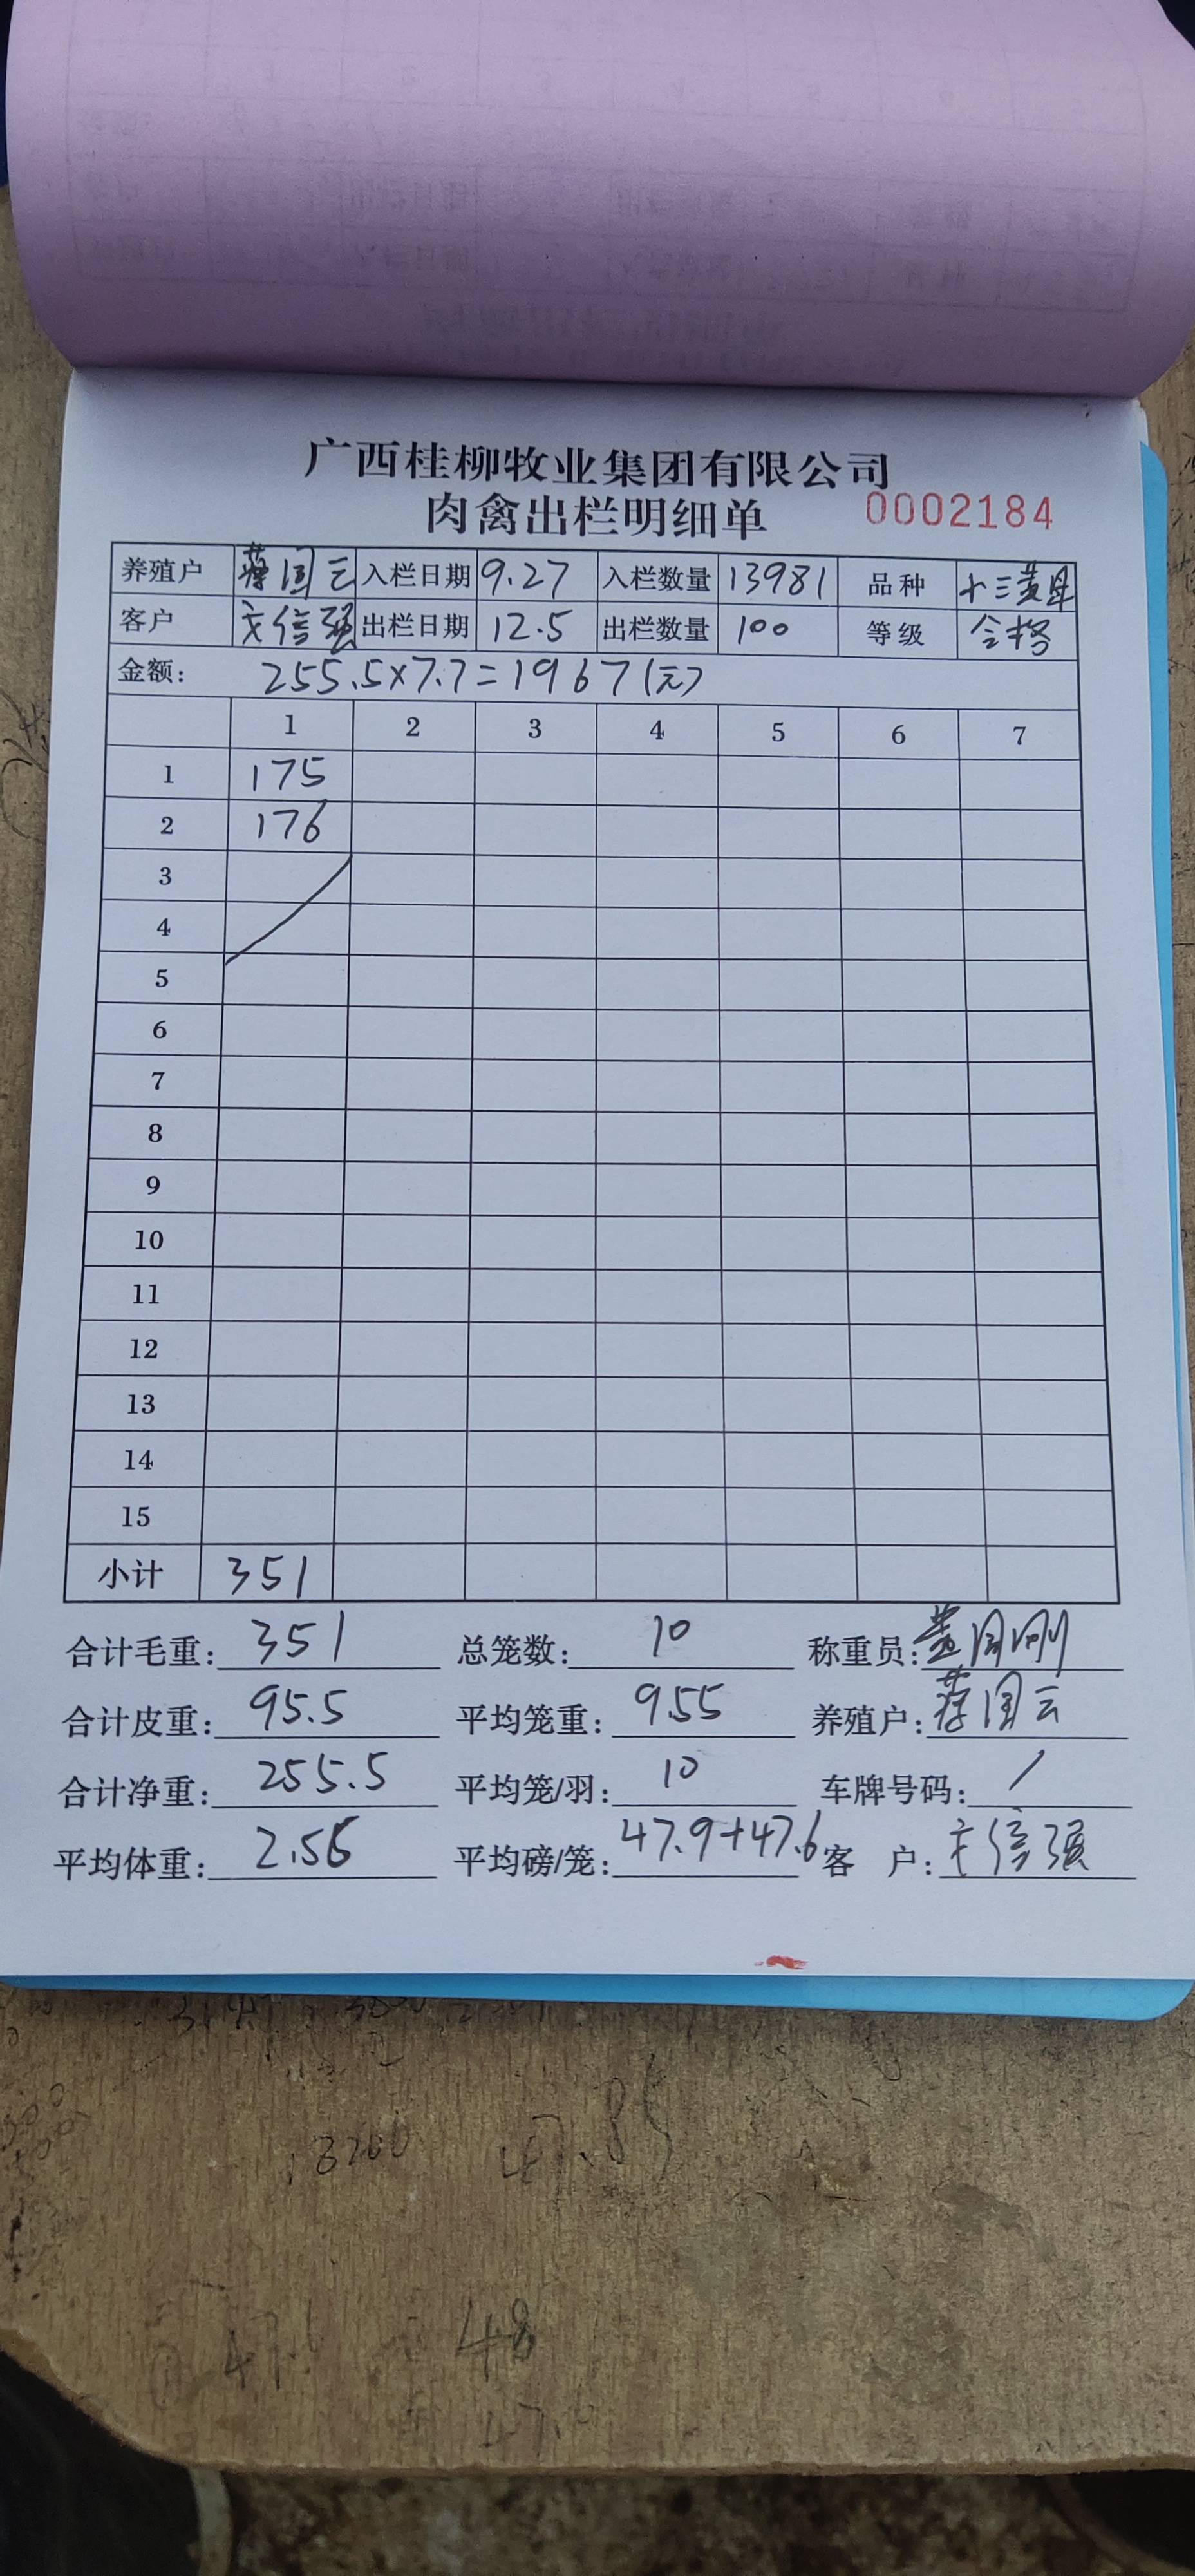 广西桂柳牧业集团有限公司
肉禽出栏明细单 0002184
养殖户 蒋国云 入栏日期 9.27 入栏数量 13981 品种 十三黄母
客户 文信强 出栏日期 12.5 出栏数量 100 等级 合格
金额: 255.5×7.7=1967(元)
1 2 3 4 5 6 7
1 175
2 176
3
4
5
6
7
8
9
10
11
12
13
14
15
小计 351
合计毛重: 351 总笼数: 10 称重员: 国刚
合计皮重: 95.5 平均笼重: 9.55 养殖户: 蒋国云
合计净重: 255.5 平均笼/羽: 10 车牌号码: /
平均体重: 2.56 平均磅/笼: 47.9+47.6 客 户: 文信强
3200 47.85
47.6 48